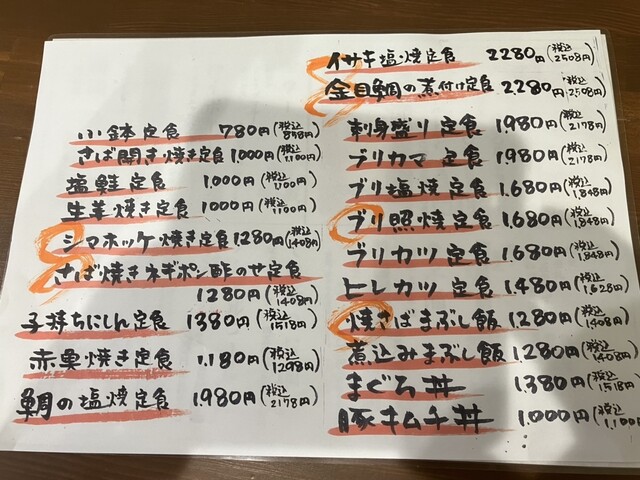 イサキ塩焼定食 2280円(税込2508円)
金目鯛の煮付け定食 2280円(税込2508円)
刺身盛り定食 1,980円(税込2178円)
ブリカマ定食 1,980円(税込2178円)
ブリ塩焼定食 1,680円(税込1,848円)
ブリ照焼定食 1,680円(税込1,848円)
ブリカツ定食 1,680円(税込1,848円)
ヒレカツ定食 1,480円(税込1,628円)
焼さばまぶし飯 1,280円(税込1,408円)
煮込みまぶし飯 1,280円(税込1,408円)
まぐろ丼 1,380円(税込1518円)
豚キムチ丼 1,000円(税込1,100円
小鉢定食 780円(税込858円)
さば開き焼き定食 1,000円(税込1,100円)
塩鮭定食 1,000円(税込1,100円)
生姜焼き定食 1000円(税込1100円)
シマホッケ焼き定食 1,280円(税込1408円)
さば焼きネギポン酢のせ定食
1280円(税込1408円)
子持ちにしん定食 1380円(税込1518円)
赤魚焼き定食 1,180円(税込1298円)
鯛の塩焼定食 1,980円(税込2178円)